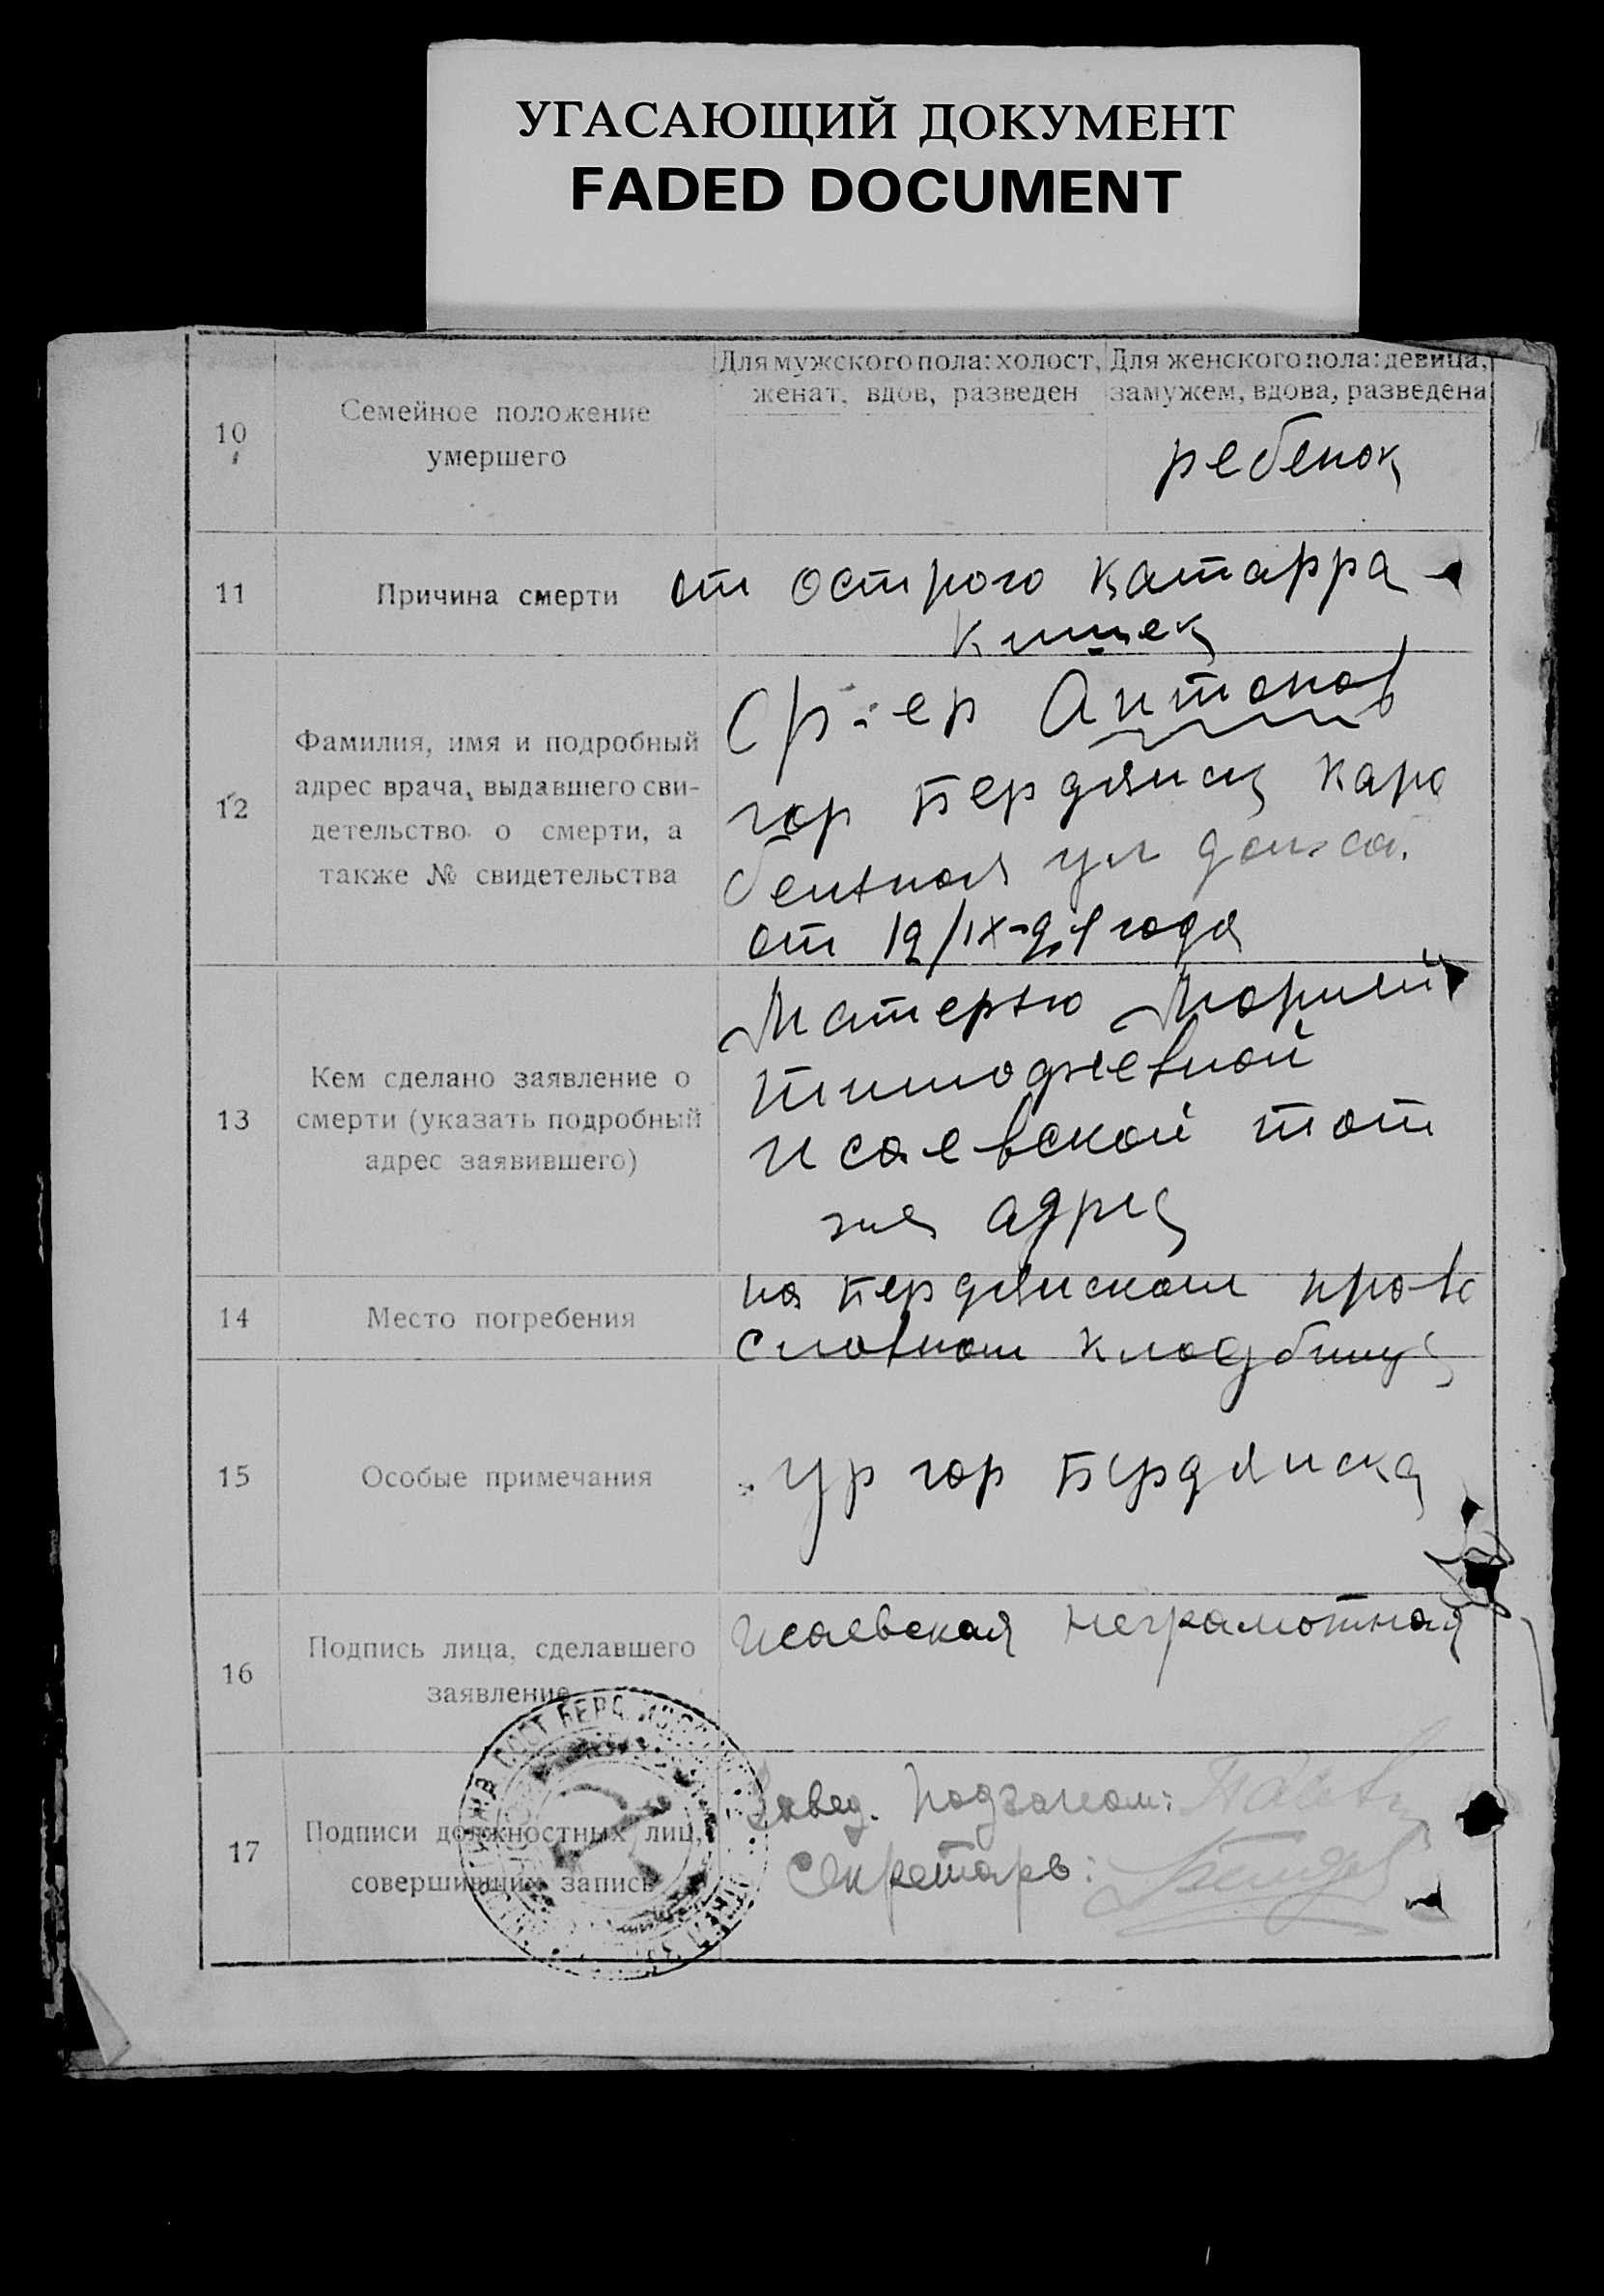 УГАСАЮЩИЙ ДОКУМЕНТ
FADED DOCUMENT
Для мужского пола: холост, женат, вдов, разведен
Для женского пола: девица, замужем, вдова, разведена
10
Семейное положение
умершего
ребенок
11
Причина смерти
от острого катарра
кишек
12
Фамилия, имя и подробный
адрес врача, выдавшего сви-
детельство о смерти, а
также № свидетельства
Антонов
гор Бердянск Каро
бентная ул
от 12/IX-21 года
13
Кем сделано заявление о
смерти (указать подробный
адрес заявившего)
Матерью Марией
Тимофеевной
Исаевской тот
же адрес
14
Место погребения
на Бердянском право
славном кладбище
15
Особые примечания
ур гор Бердянска
16
Подпись лица, сделавшего
заявление
Исаевская неграмотная
17
Подписи должностных лиц,
совершивших запись
Завед. Подзагсом:
Секретарь: